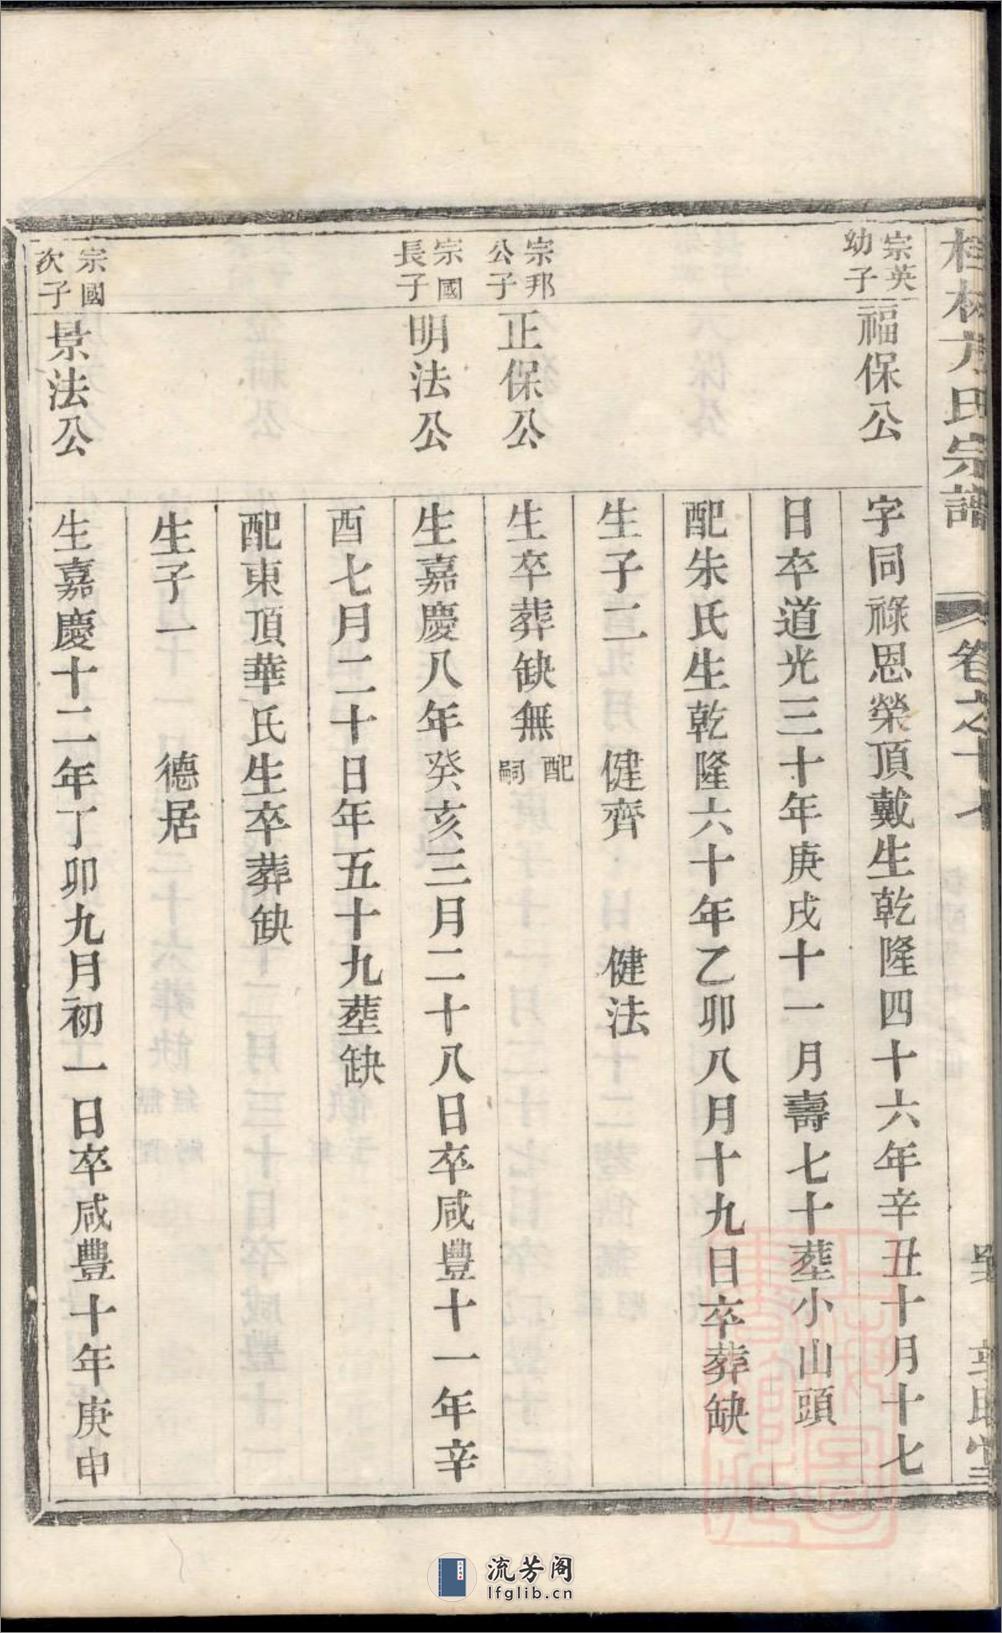 桂林方氏宗譜
卷之十七
宗英
幼子
福保公
字同祿恩榮頂戴生乾隆四十六年辛丑十月十七
日卒道光三十年庚戌十一月壽七十塟小山頭
配朱氏生乾隆六十年乙卯八月十九日卒葬缺
生子二 健齊 健法
宗邦
公子
正保公
生卒葬缺無配嗣
宗國
長子
明法公
生嘉慶八年癸亥三月二十八日卒咸豐十一年辛
酉七月二十日年五十九塟缺
配東頂華氏生卒葬缺
生子一 德居
宗國
次子
景法公
生嘉慶十二年丁卯九月初一日卒咸豐十年庚申
流芳阁
lfglib.cn